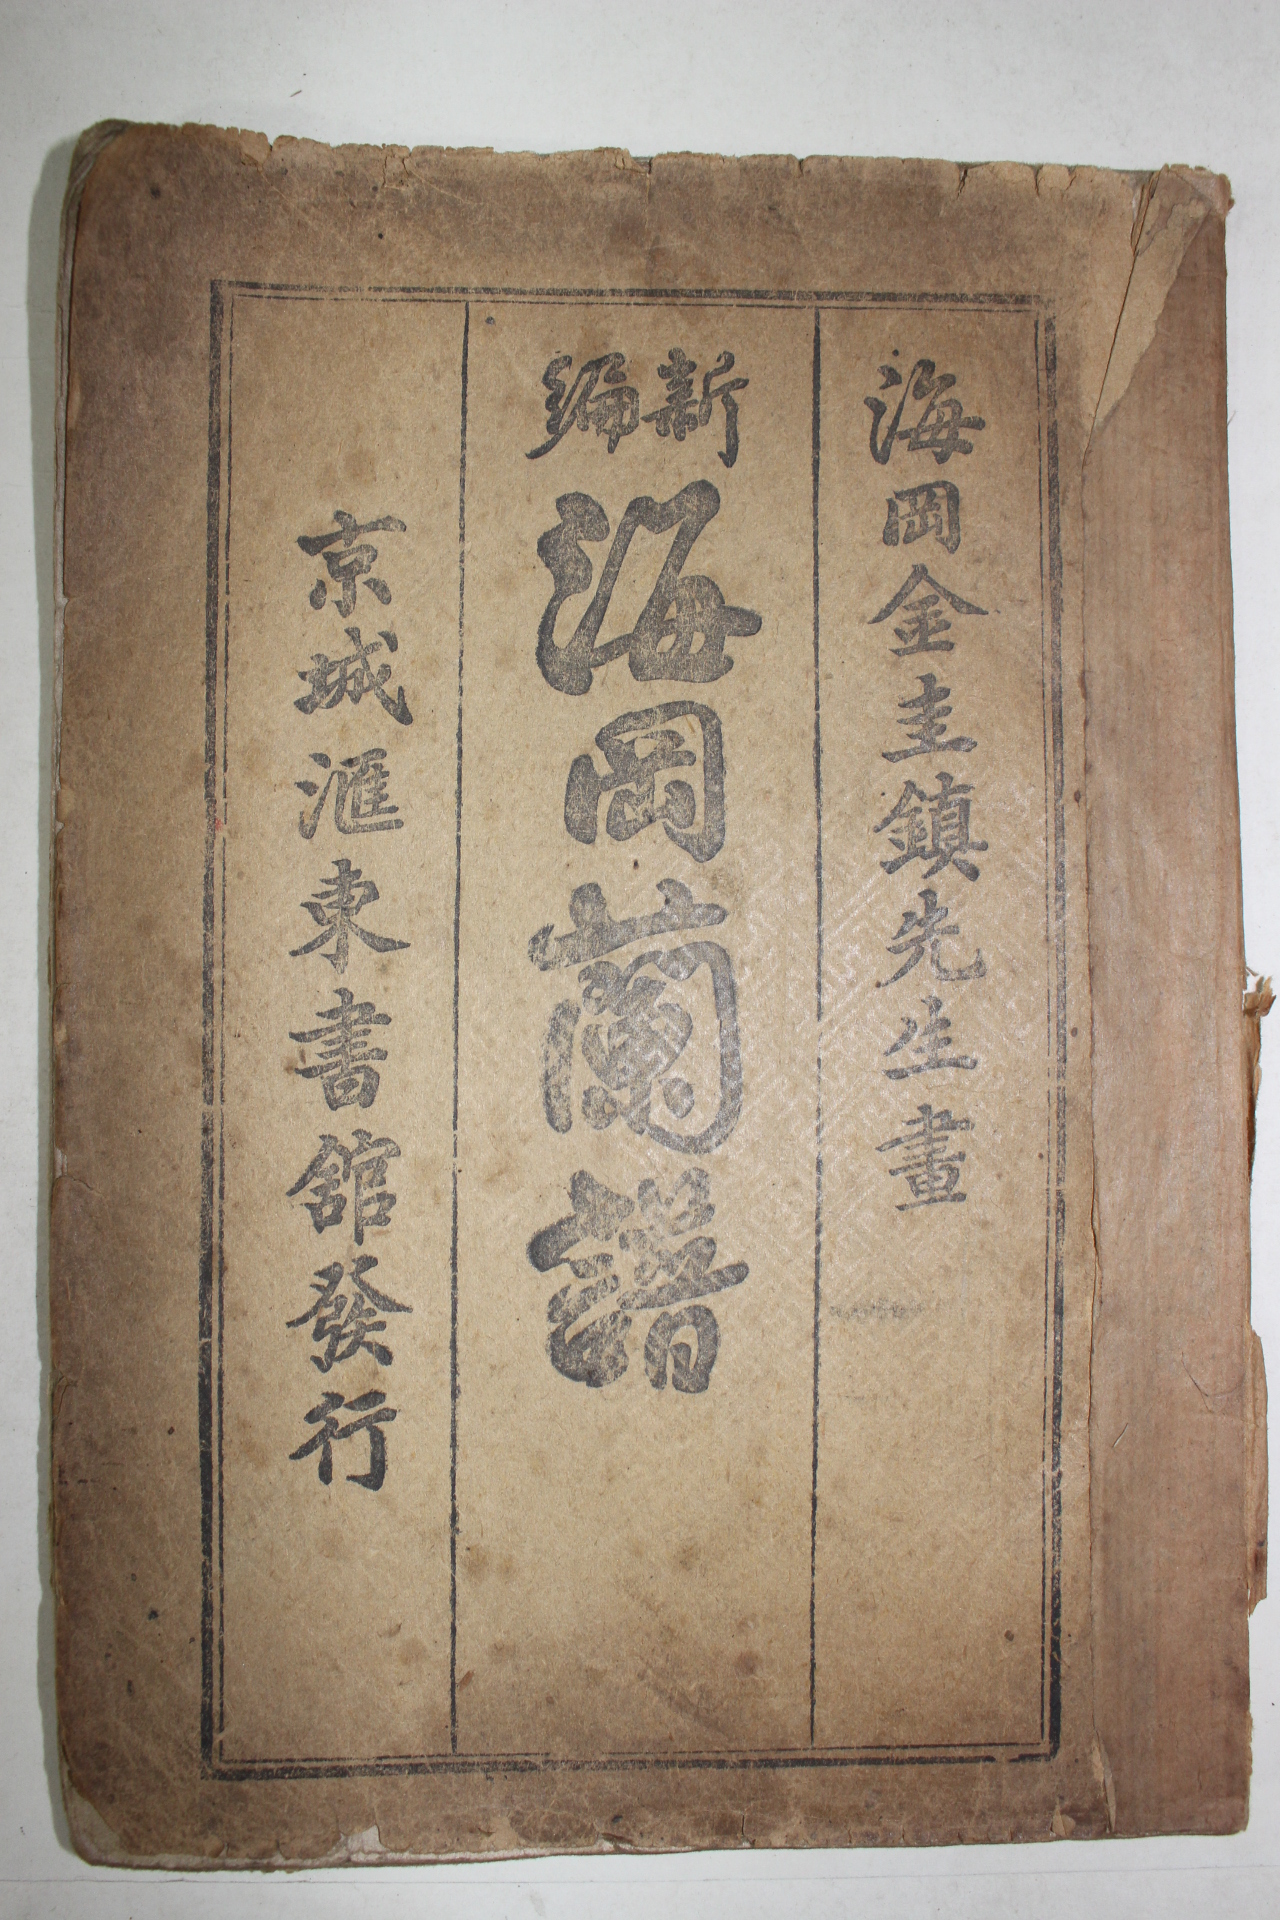 海岡金圭鎮先生畫
新編
海岡蘭譜
京城滙東書舘發行